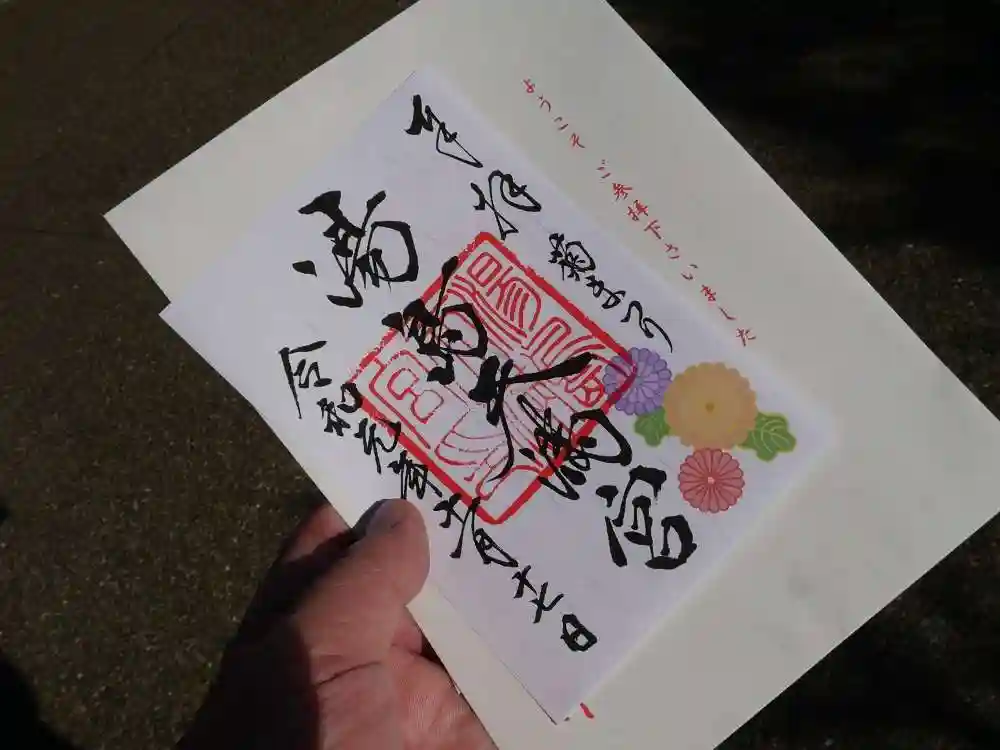 ようこそ ご参拝下さいました
奉拝 菊まつり
湯島天満宮
令和元年十一月十七日